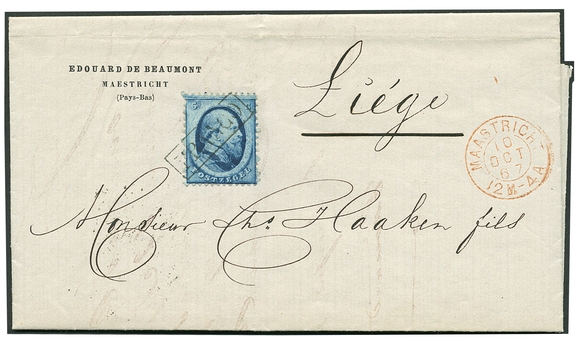 EDOUARD DE BEAUMONT
MAESTRICHT
(Pays-Bas)
5
POSTZEGEL
Liége
MAASTRICHT
10
OCT
67
12M-4A
Monsieur Chs. Haaken fils